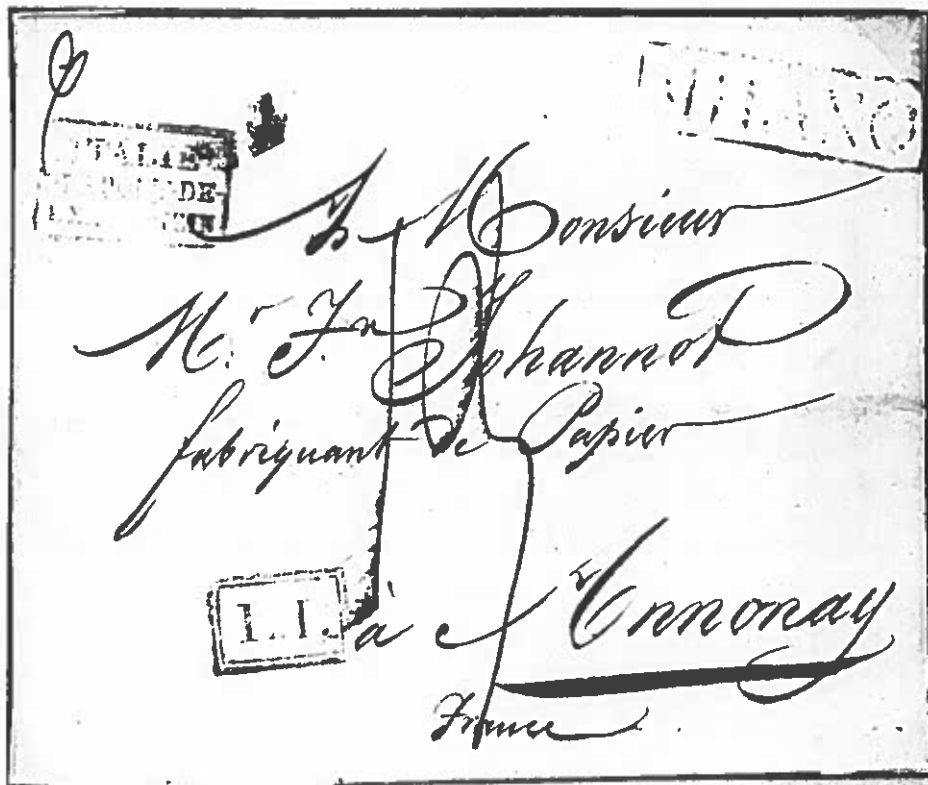 MILANO
ITALIE
DE
A Monsieur
Mr. Jn Johannot
fabriquant de Papier
L.I.
à Annonay
France